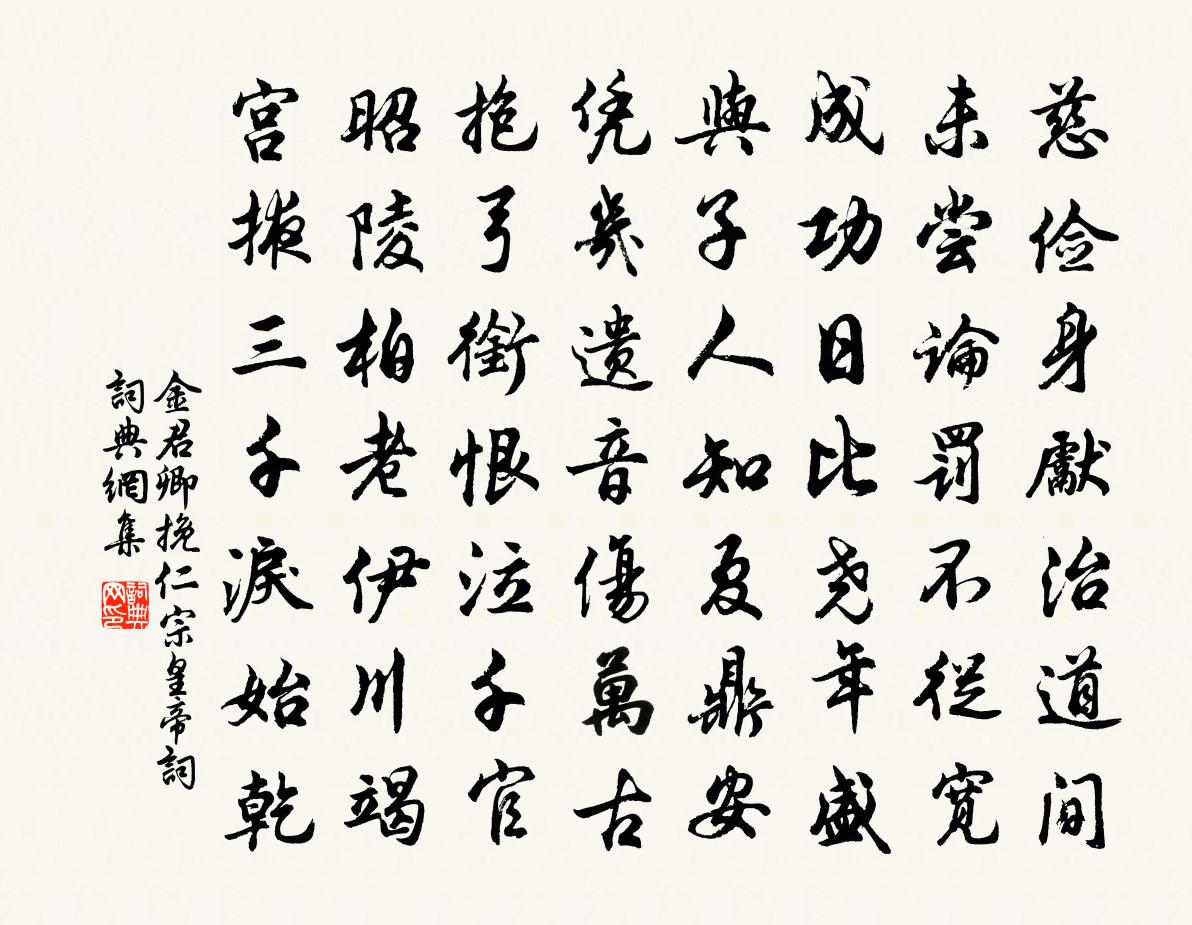 慈俭身獻治道间
未尝論罰不從寬
成功日比尧年盛
與子人知夏鼎安
凭幾遺音傷萬古
抱弓銜恨泣千官
昭陵柏老伊川竭
宫掖三千淚始乾
金君卿挽仁宗皇帝詞
詞典網集
詞典网印